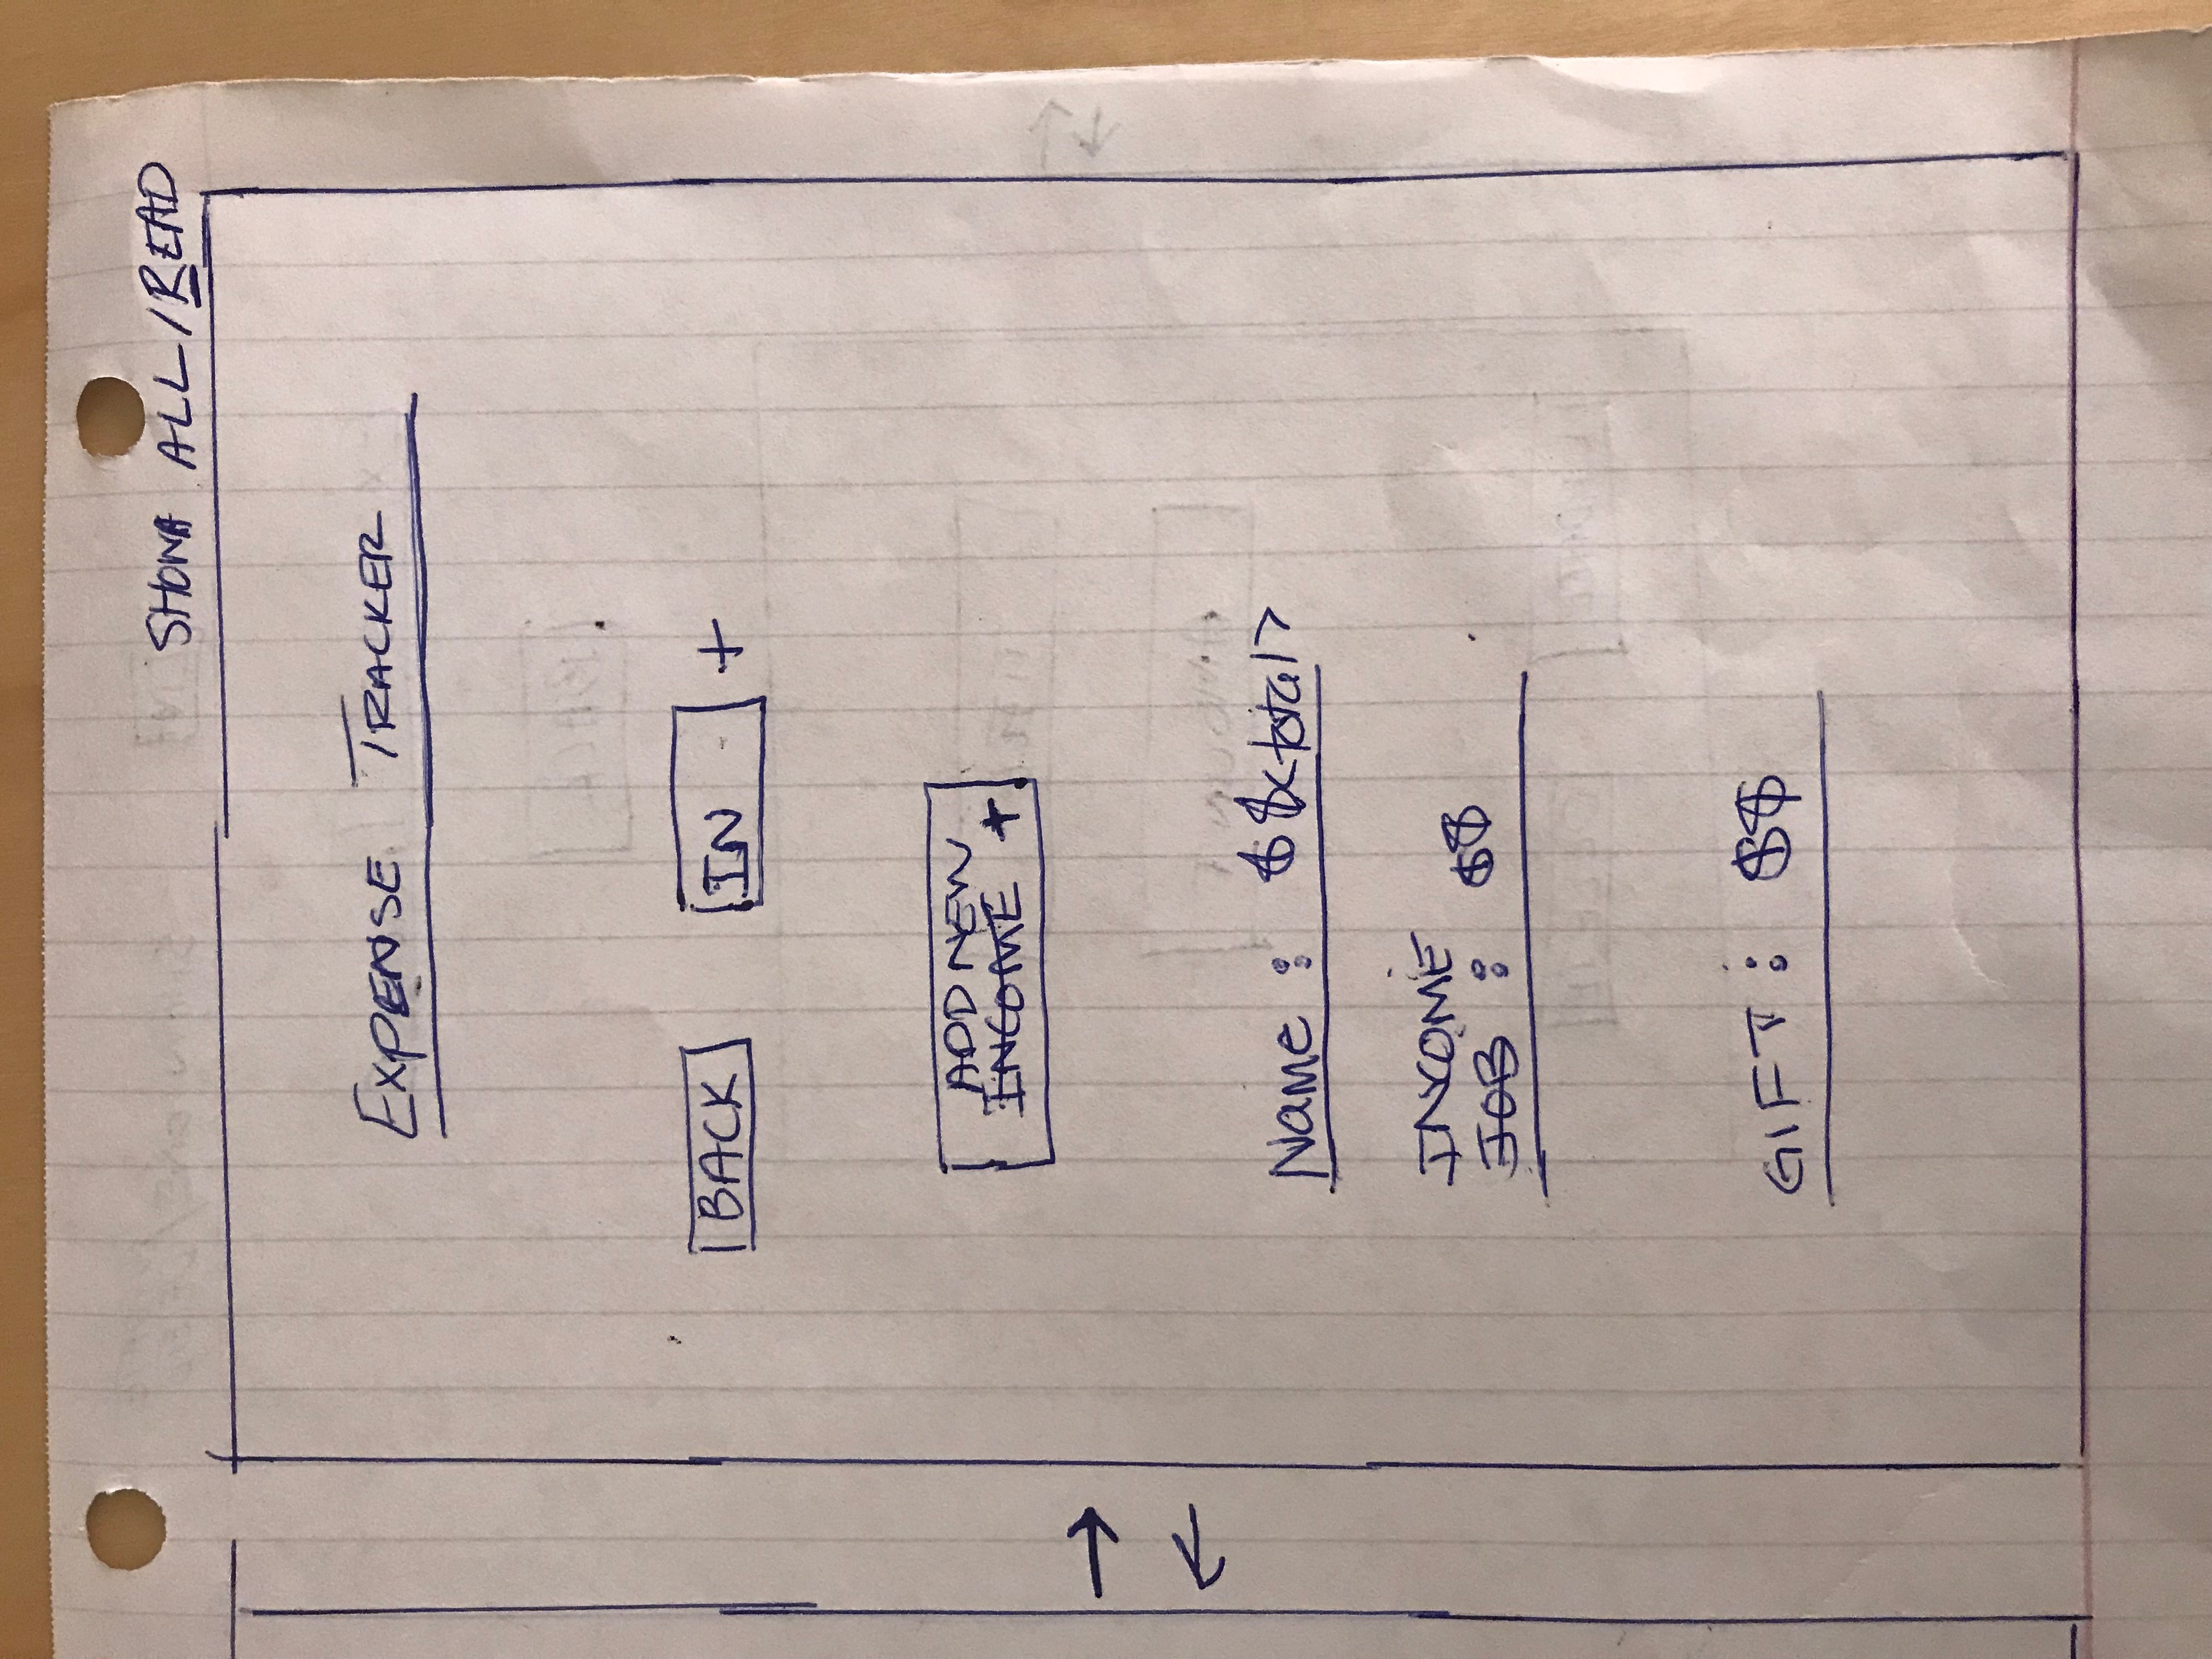 SHOWA ALL/READ
EXPENSE TRACKER
BACK IN +
ADD NEW
INCOME +
Name : $$<total>
INCOME
JOB : $$
GIFT : $$